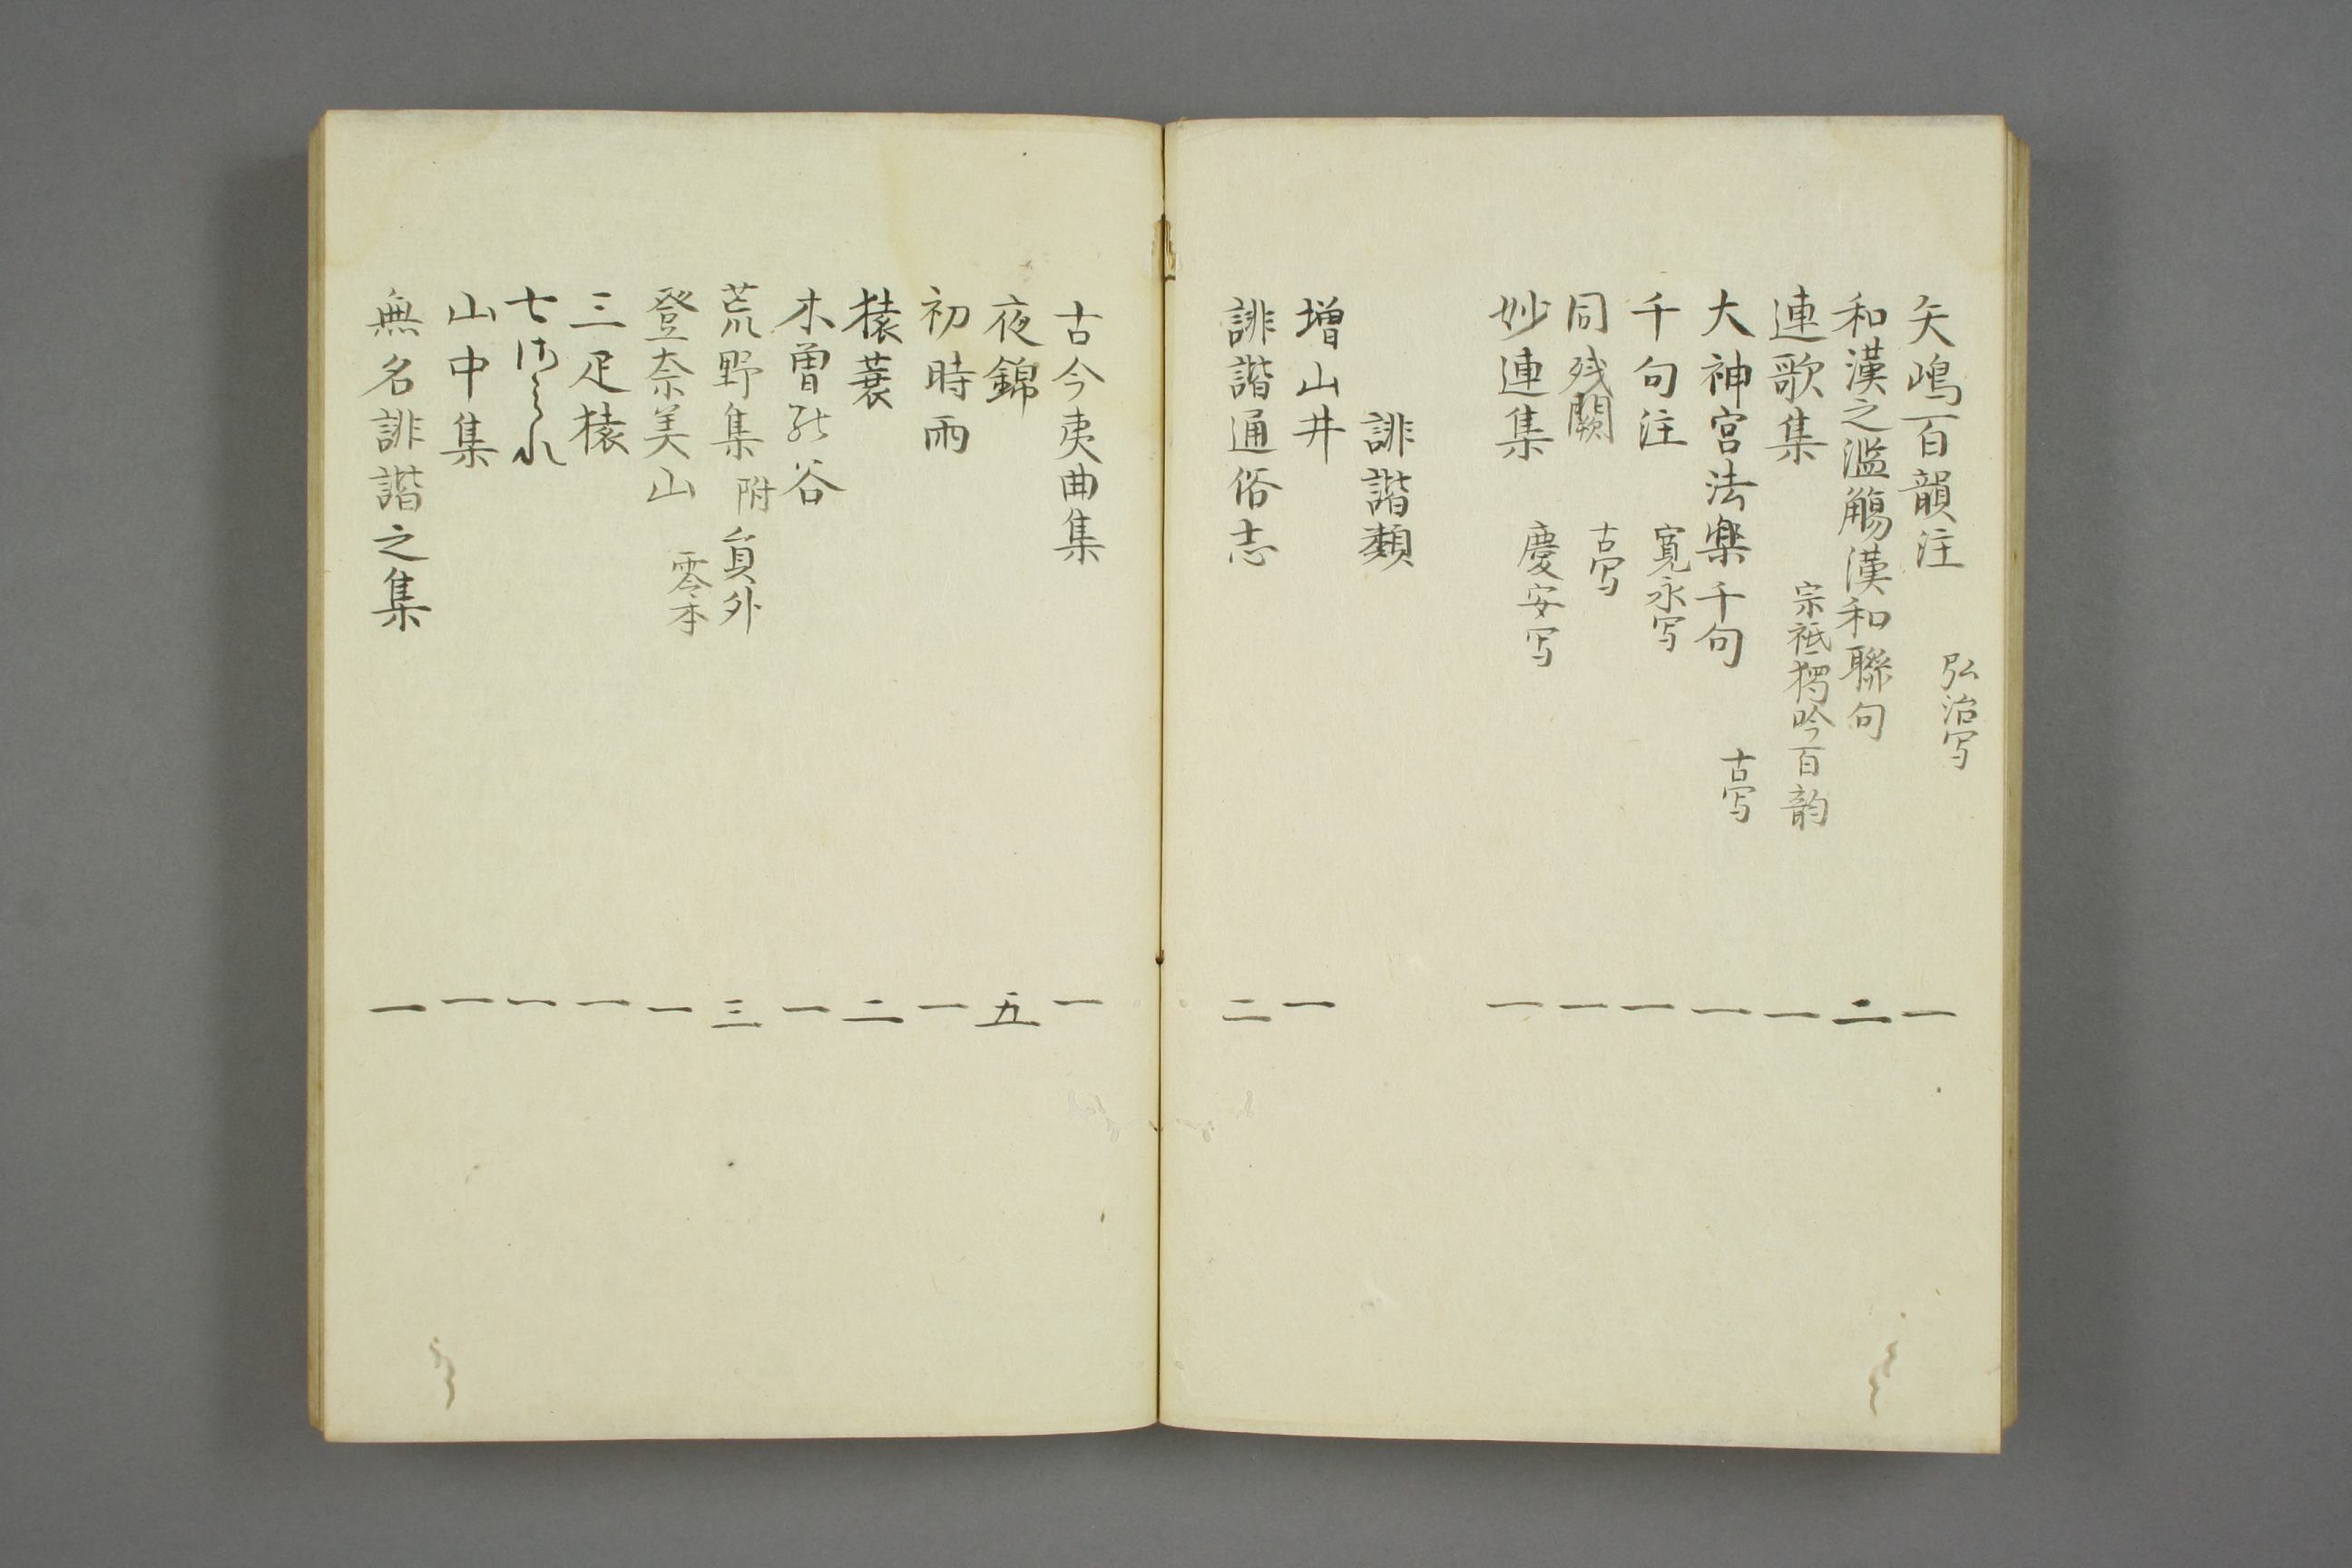 矢嶋百韻注 弘治写 一
和漢之濫觴漢和聯句 二
連歌集 宗祗独吟百韵 一
大神宮法楽千句 古写 一
千句注 寛永写 一
同残闕 古写 一
妙連集 慶安写 一
誹諧類
増山井 一
誹諧通俗志 二
古今夷曲集 一
夜錦 五
初時雨 一
猿蓑 二
木曽能谷 一
荒野集 附員外 三
登奈美山 零本 一
三疋猿 一
七さみれ 一
山中集 一
無名誹諧之集 一